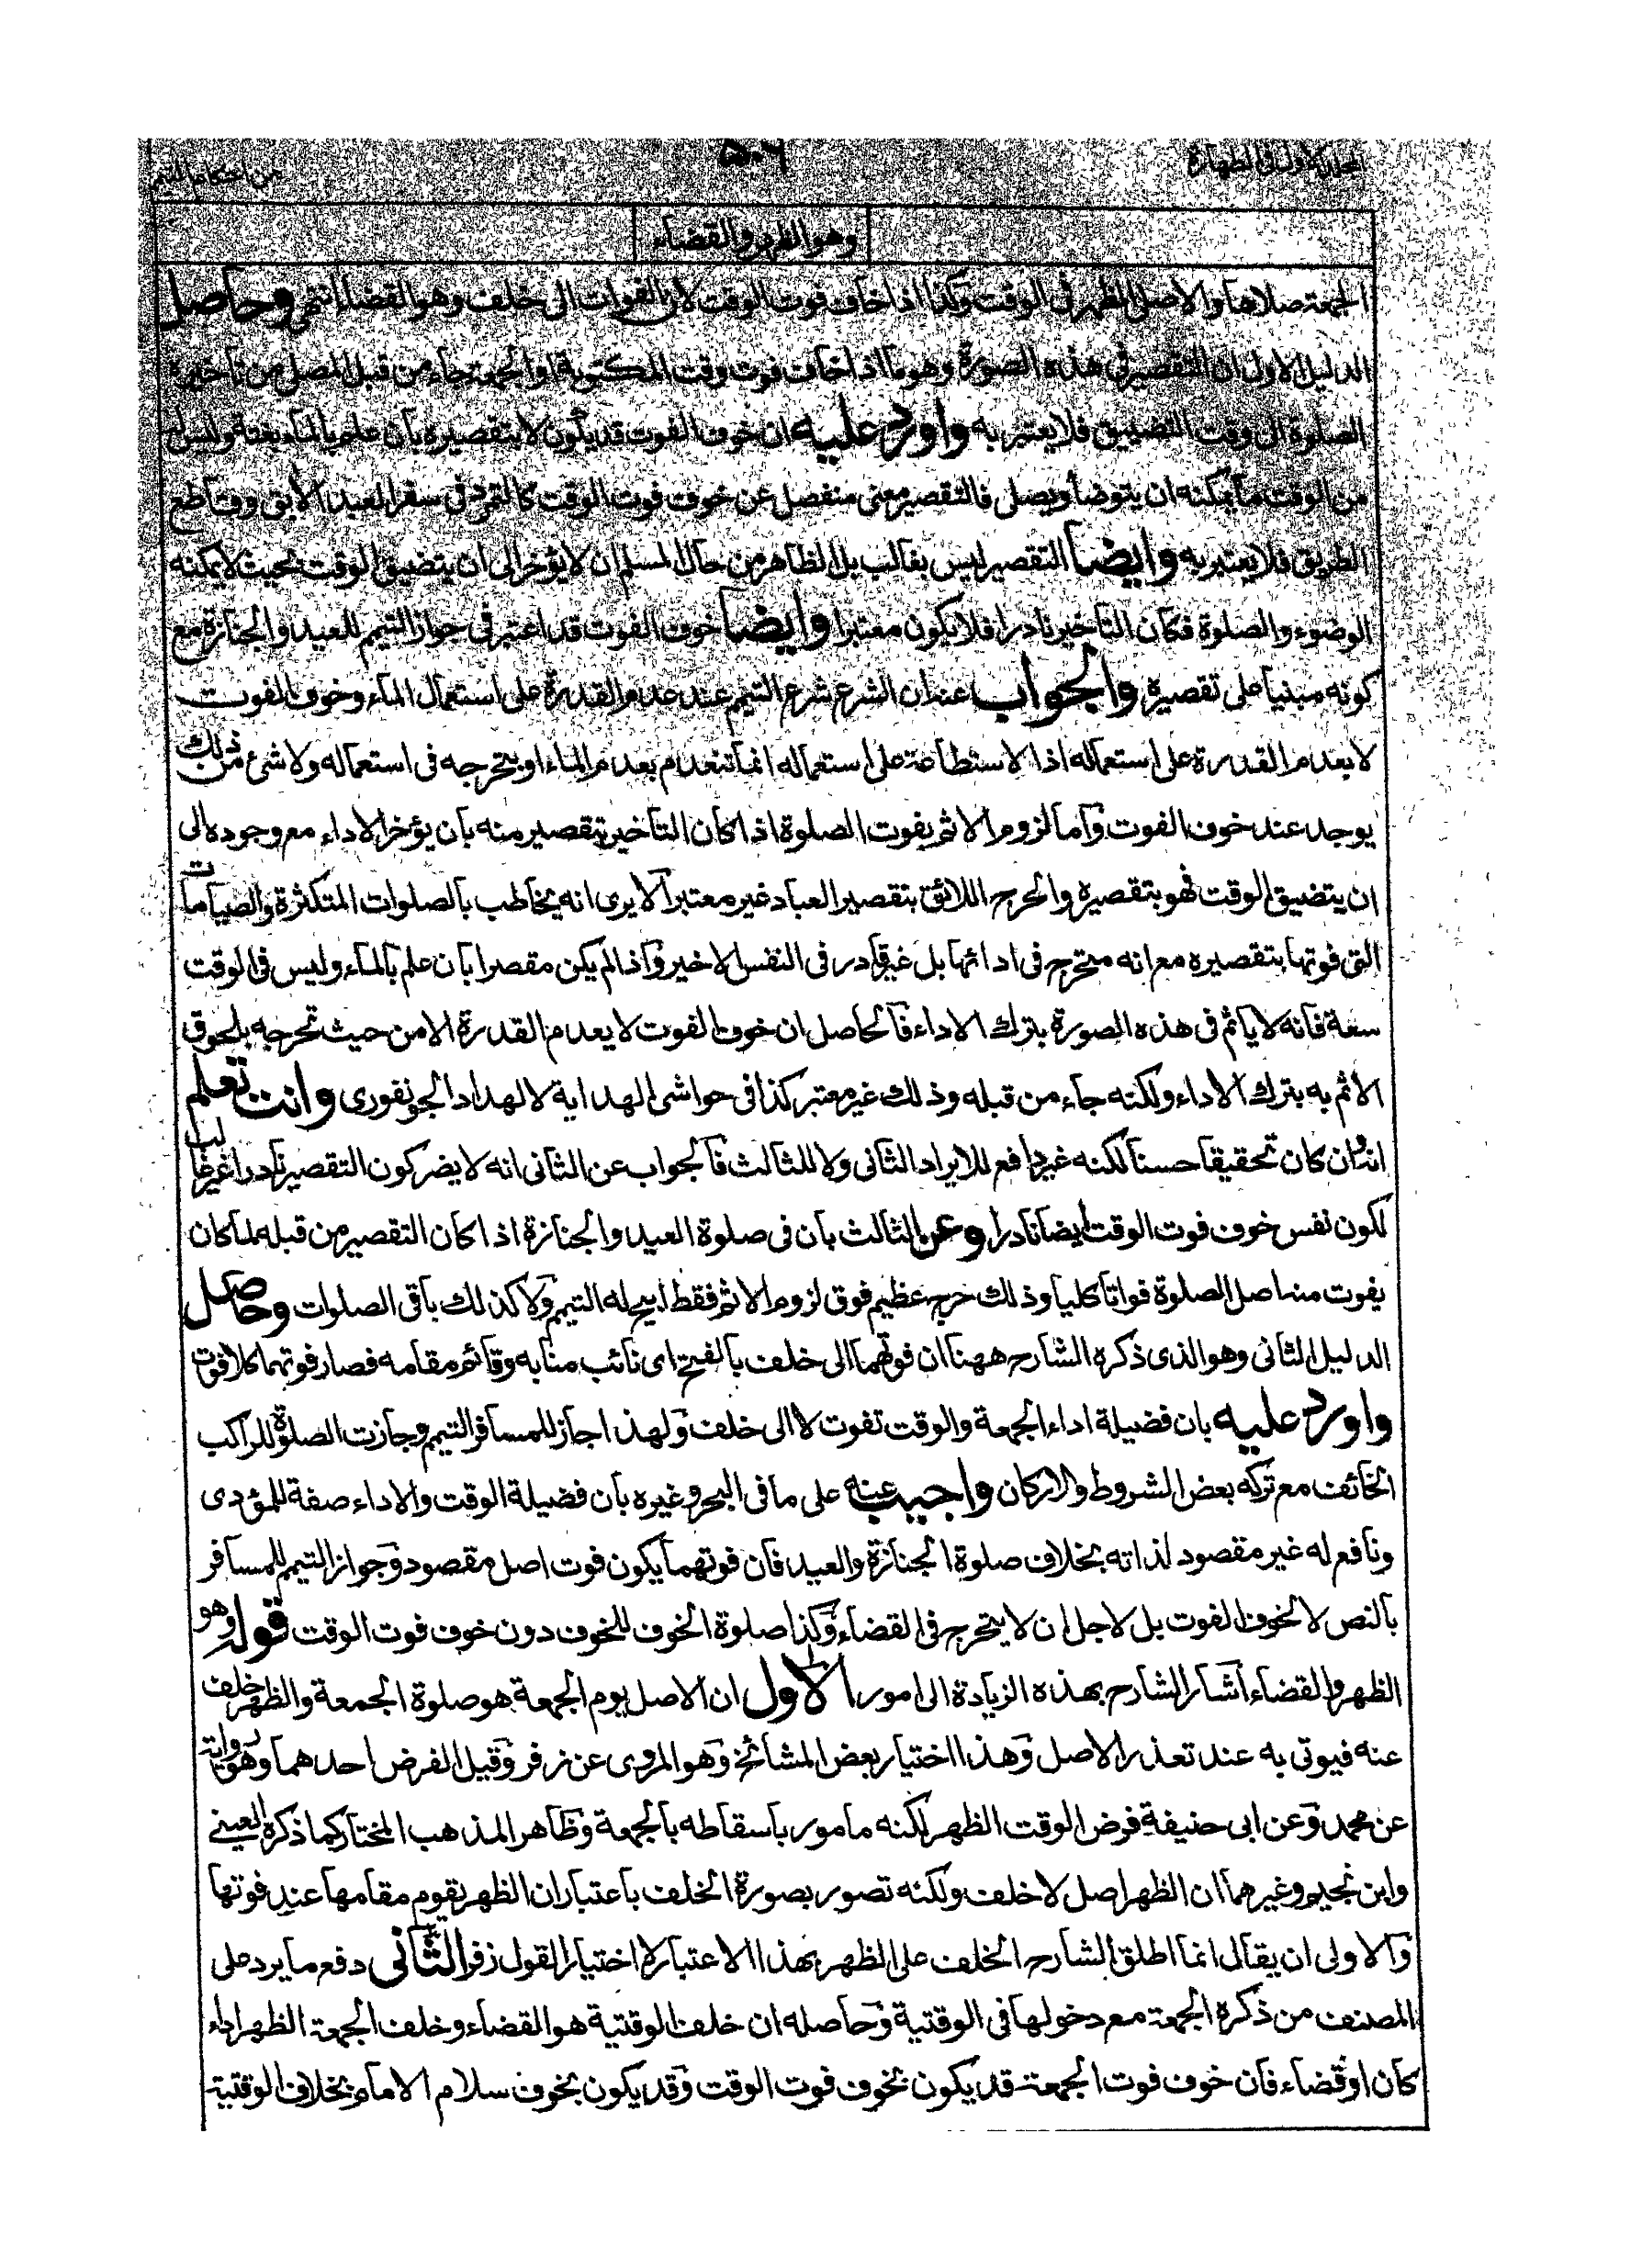 المجلد الاول فى الطهارة ٥٠٦ من احكام التيمم
وهو الظهر والقضاء
الجمعة صلاها والا صلى الظهر فى الوقت وكذا اذا خاف فوت الوقت لان الفوات الى خلف وهو القضاء انتهى وحاصل
الدليل الاول ان التقصير فى هذه الصورة وهو ما اذا خاف فوت وقت المكتوبة او الجمعة جاء من قبل المصلى من تاخيره
الصلوة الى وقت التضييق فلا يعتبر به واورد عليه ان خوف الفوت قد يكون لا بتقصيره بان علم بالماء بغتة وليس له
من الوقت ما يمكنه ان يتوضأ ويصلى فالتقصير معنى منفصل عن خوف فوت الوقت كالتمرد فى سفر العبد الآبق وقاطع
الطريق فلا يعتبر به وايضا التقصير ليس بغالب بل الظاهر من حال المسلم ان لا يؤخر الى ان يتضيق الوقت بحيث لا يمكنه
الوضوء والصلوة فكان التاخير نادرا فلا يكون معتبرا وايضا خوف الفوت قد اعتبر فى جواز التيمم للعيد والجنازة مع
كونه مبنيا على تقصيره والجواب عنه ان الشرع شرع التيمم عند عدم القدرة على استعمال الماء وخوف الفوت
لا يعدم القدرة على استعماله اذا لاستطاعة على استعماله انما تنعدم بعدم الماء او بتحرجه فى استعماله ولا شئ من ذلك
يوجد عند خوف الفوت واما لزوم الاثم بفوت الصلوة اذا كان التاخير بتقصير منه بان يؤخر الاداء مع وجوده الى
ان يتضيق الوقت فهو بتقصيره والحرج اللائق بتقصير العباد غير معتبر الا يرى انه يخاطب بالصلوات المتكثرة والصيامات
التى فوتها بتقصيره مع انه متحرج فى ادائها بل غير قادر فى النفس الاخير واذا لم يكن مقصرا بان علم بالماء وليس فى الوقت
سعة فانه لا ياثم فى هذه الصورة بترك الاداء فالحاصل ان خوف الفوت لا يعدم القدرة الا من حيث تحرجه بلحوق
الاثم به بترك الاداء ولكنه جاء من قبله وذلك غير معتبر كذا فى حواشى الهداية لالهداد الجونفورى وانت تعلم
انه وان كان تحقيقا حسنا لكنه غير دافع للايراد الثانى ولا للثالث فالجواب عن الثانى انه لا يضر كون التقصير نادرا غير غالب
لكون نفس خوف فوت الوقت ايضا نادرا وعن الثالث بان فى صلوة العيد والجنازة اذا كان التقصير من قبله لما كان
يفوت منه اصل الصلوة فواتا كليا وذلك حرج عظيم فوق لزوم الاثم فقط ابيح له التيمم ولا كذلك باقى الصلوات وحاصل
الدليل الثانى وهو الذى ذكره الشارح ههنا ان فوتهما الى خلف بالفتح اى نائب منابه وقائم مقامه فصار فوتهما كلا فوت
واورد عليه بان فضيلة اداء الجمعة والوقت تفوت لا الى خلف ولهذا جاز للمسافر التيمم وجازت الصلوة للراكب
الخائف مع تركه بعض الشروط والاركان واجيب عنه على ما فى البحر وغيره بان فضيلة الوقت والاداء صفة للمؤدى
ونافع له غير مقصود لذاته بخلاف صلوة الجنازة والعيد فان فوتهما يكون فوت اصل مقصود وجواز التيمم للمسافر
بالنص لا لخوف الفوت بل لاجل ان لا يتحرج فى القضاء وكذا صلوة الخوف للخوف دون خوف فوت الوقت قوله وهو
الظهر والقضاء اشار الشارح بهذه الزيادة الى امور الاول ان الاصل يوم الجمعة هو صلوة الجمعة والظهر خلف
عنه فيوتى به عند تعذر الاصل وهذا اختيار بعض المشائخ وهو المروى عن زفر وقيل الفرض احدهما وهو رواية
عن محمد وعن ابى حنيفة فرض الوقت الظهر لكنه مامور باسقاطه بالجمعة وظاهر المذهب المختار كما ذكره العينى
وابن نجيم وغيرهما ان الظهر اصل لا خلف ولكنه تصور بصورة الخلف باعتبار ان الظهر يقوم مقامها عند فوتها
والاولى ان يقال انما اطلق الشارح الخلف على الظهر بهذا الاعتبار لا اختيارا لقول زفر الثانى دفع ما يرد على
المصنف من ذكره الجمعة مع دخولها فى الوقتية وحاصله ان خلف الوقتية هو القضاء وخلف الجمعة الظهر اداء
كان او قضاء فان خوف فوت الجمعة قد يكون بخوف فوت الوقت وقد يكون بخوف سلام الامام بخلاف الوقتية